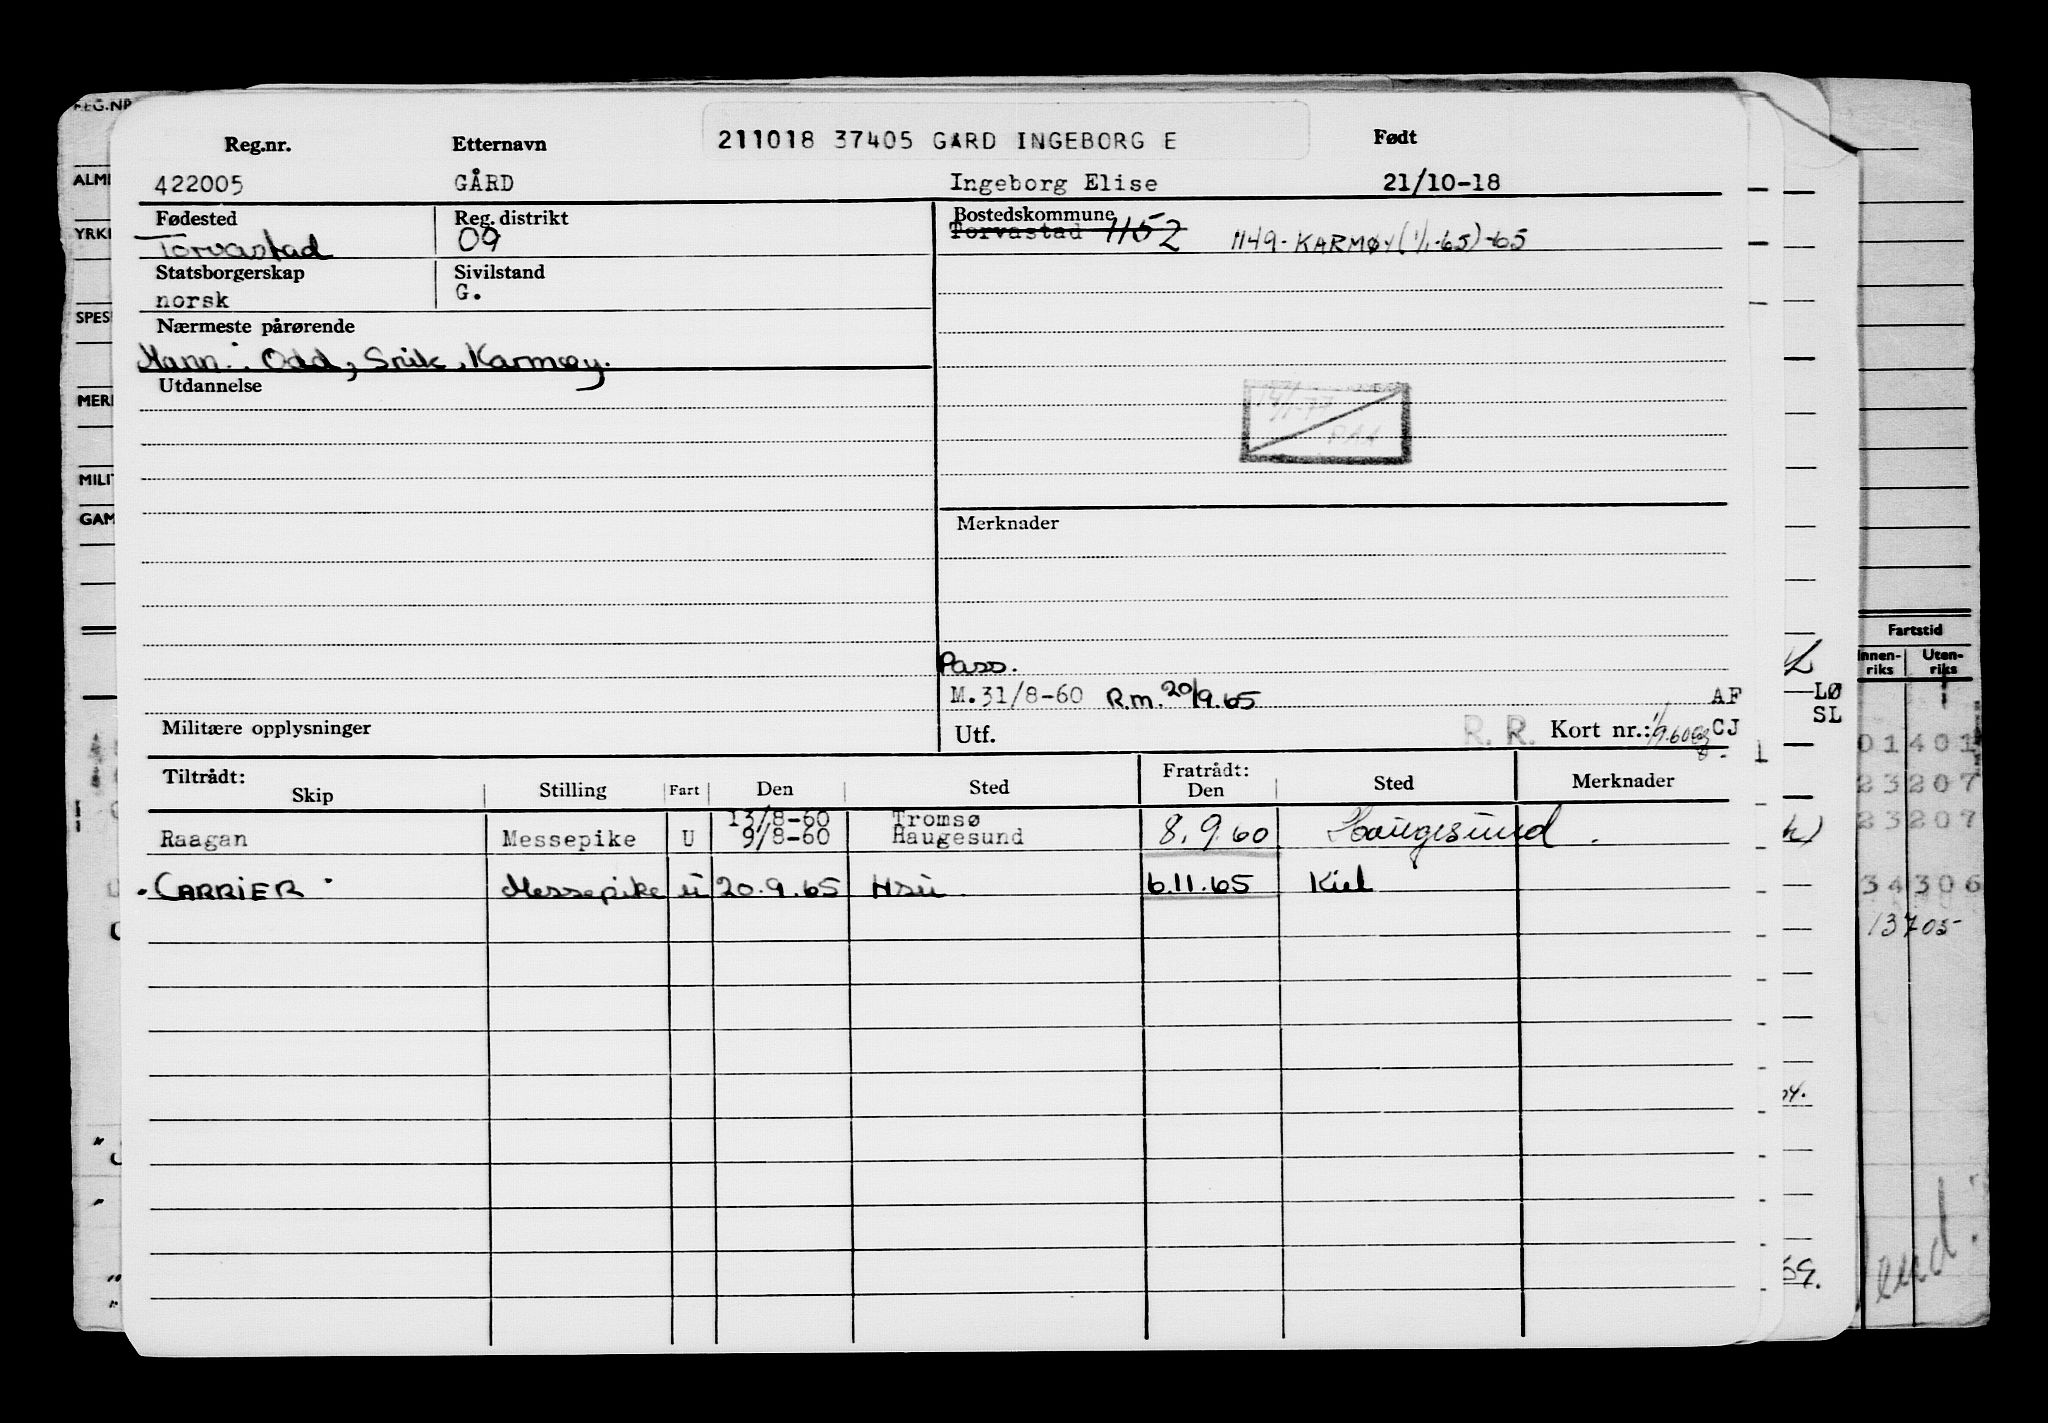 211018 37405 GARD INGEBORG E
Reg.nr. Etternavn Født
422005 GÅRD Ingeborg Elise 21/10-18
Fødested Reg. distrikt Bostedskommune
Torvastad 09 Torvastad 1152 1149-KARMØY (1/1-65)-65
Statsborgerskap Sivilstand
norsk G.
Nærmeste pårørende
Mann: Odd, Snik, Karmøy.
Utdannelse
Merknader
Pass.
M.31/8-60 R.m. 20/9.65 AF
Militære opplysninger Utf. R. R. Kort nr.: CJ
Tiltrådt: Fratrådt:
Skip Stilling Fart Den Sted Den Sted Merknader
13/8-60 Tromsø
Raagan Messepike U 9/8-60 Haugesund 8.9.60 Haugesund.
"CARRIER" Messepike u 20.9.65 Hsu 6.11.65 Kiel
REG.NR
ALM
YRK
SPES
MER
MILI
GAM
LØ
SL
Fartstid
Innen-riks Uten-riks
01401
23207
23207
34306
13705-